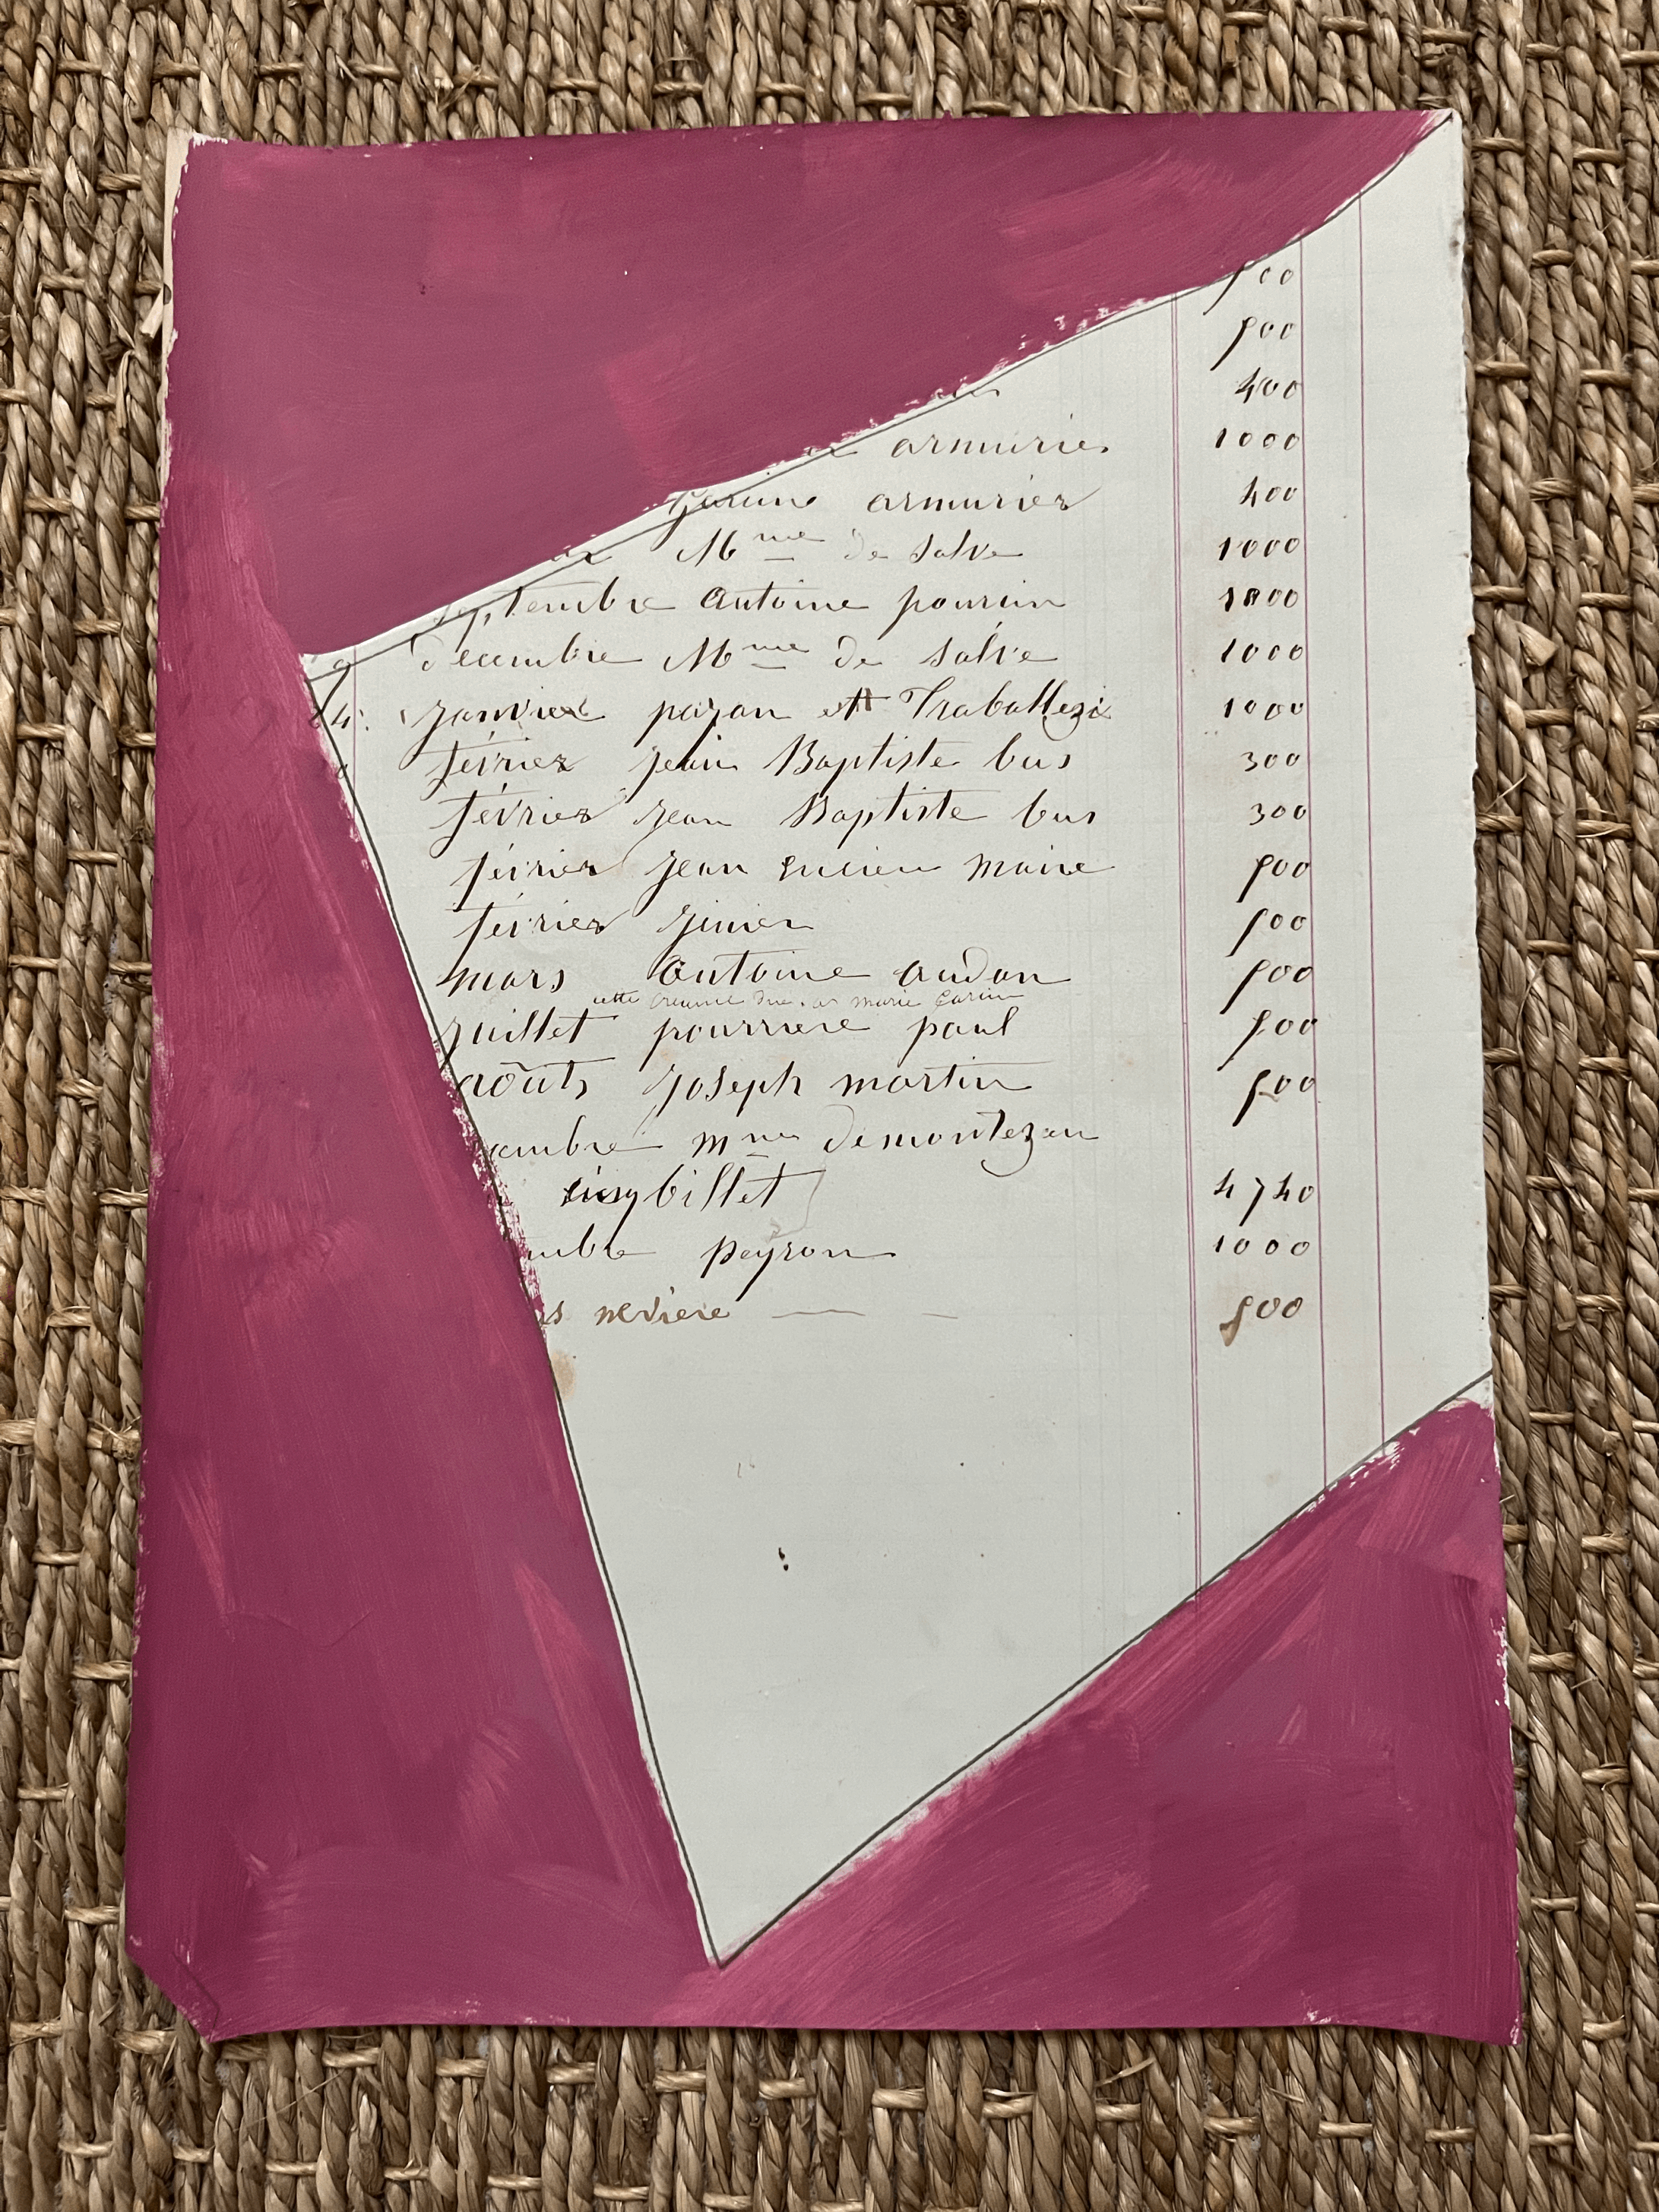 500
500
400
armurier 1000
armurier 400
Mme de Salve 1000
septembre Antoine pourcin 1000
décembre Mme de Salve 1000
janvier payan et Traballezi 1000
février jean Baptiste bus 300
février jean Baptiste bus 300
février jean Lucien maire 500
février 500
mars Antoine audon 500
cette creance marie
juillet pourriere paul 500
août joseph martin 500
embre mme demontezan
billet 4740
embre peyron 1000
s neviere 500